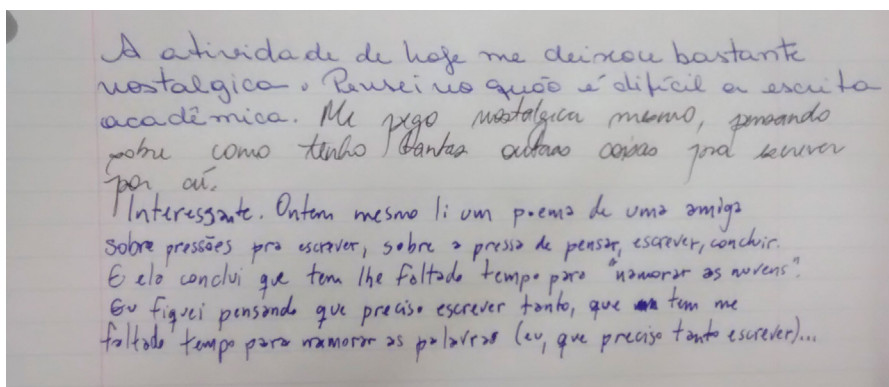 A atividade de hoje me deixou bastante
nostalgica. Pensei no quão é difícil a escrita
acadêmica. Me pego nostalgica mesmo, pensando
sobre como tenho tantas outras coisas pra escrever
por aí.
Interessante. Ontem mesmo li um poema de uma amiga
sobre pressões pra escrever, sobre a pressa de pensar, escrever, concluir.
E ela conclui que tem lhe faltado tempo para "namorar as nuvens".
Eu fiquei pensando que preciso escrever tanto, que tem me
faltado tempo para namorar as palavras (eu, que preciso tanto escrever)...